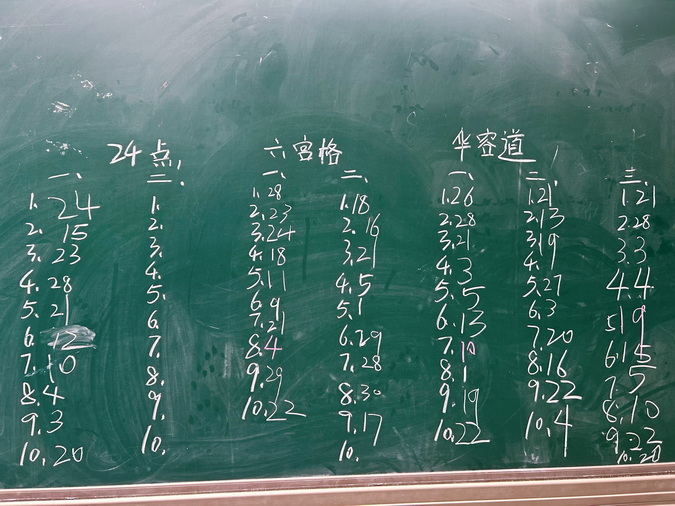 24点 六宫格 华容道
一、 二、 一、 二、 一、 二、 三、
1. 24
2. 15
3. 23
4. 28
5. 21
6. 12
7. 10
8. 4
9. 3
10. 20
1.
2.
3.
4.
5.
6.
7.
8.
9.
10.
1. 28
2. 23
3. 24
4. 18
5. 11
6. 9
7. 21
8. 4
9. 29
10. 22
1. 18
2. 16
3. 21
4. 5
5. 1
6. 29
7. 28
8. 30
9. 17
10.
1. 26
2. 28
3. 21
4. 3
5. 5
6. 13
7. 10
8. 1
9. 19
10. 22
1. 21
2. 13
3. 19
4. 9
5. 27
6. 3
7. 20
8. 16
9. 22
10. 4
1. 21
2. 28
3. 3
4. 4
5. 19
6. 15
7. 5
8. 10
9. 22
10. 20